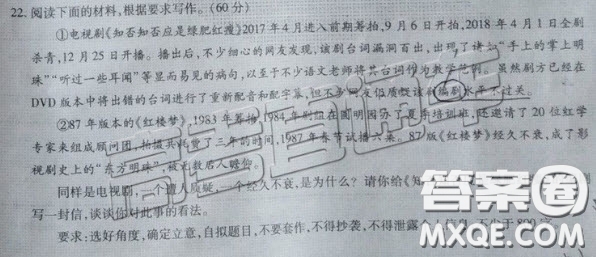 22. 阅读下面的材料,根据要求写作。(60分)
①电视剧《知否知否应是绿肥红瘦》2017年4月进入前期筹拍,9月6日开拍,2018年4月1日全剧
杀青,12月25日开播。播出后,不少细心的网友发现,该剧台词漏洞百出,出现了诸如“手上的掌上明
珠”“听过一些耳闻”等显而易见的病句,以至于不少语文老师将其台词作为教学范例。虽然剧方已经在
DVD版本中将出错的台词进行了重新配音和配字幕,但不少网友但感慨该剧编剧水平不过关。
②87年版本的《红楼梦》,1983年筹拍,1984年剧组在圆明园办了夏季培训班,还邀请了20位红学
专家来组成顾问团,拍摄共耗费了三年的时间,1987年春节试播六集。87版《红楼梦》经久不衰,成了影
视剧史上的“东方明珠”,被无数后人瞻仰。
同样是电视剧,一个遭人质疑,一个经久不衰,是为什么?请你给《知
写一封信,谈谈你对此事的看法。
要求:选好角度,确定立意,自拟题目,不要套作,不得抄袭,不得泄露个人信息,不少于800字。
答案圈
MXQE.COM